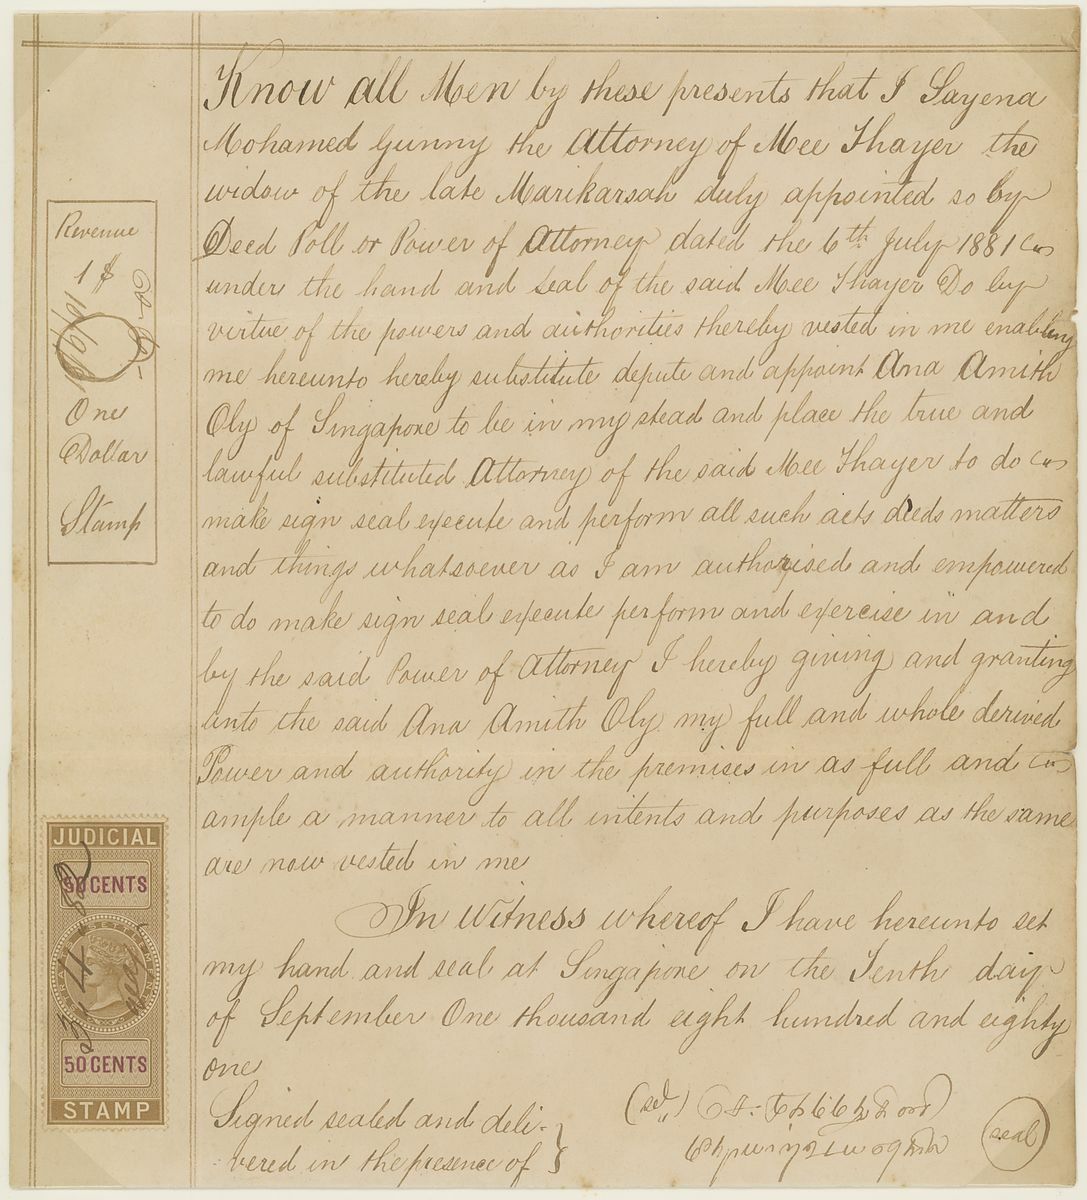 Know all Men by these presents that I Sayena
Mohamed Gunny the Attorney of Mee Thayer the
widow of the late Marikarsah duly appointed so by
Deed Poll or Power of Attorney dated the 6th July 1881
under the hand and seal of the said Mee Thayer Do by
virtue of the powers and authorities thereby vested in me enabling
me hereunto hereby substitute depute and appoint Ana Amith
Oly of Singapore to be in my stead and place the true and
lawful substituted Attorney of the said Mee Thayer to do
make sign seal execute and perform all such acts deeds matters
and things whatsoever as I am authorised and empowered
to do make sign seal execute perform and exercise in and
by the said Power of Attorney I hereby giving and granting
unto the said Ana Amith Oly my full and whole derived
Power and authority in the premises in as full and
ample a manner to all intents and purposes as the same
are now vested in me
In Witness whereof I have hereunto set
my hand and seal at Singapore on the Tenth day
of September One thousand eight hundred and eighty
one
Signed sealed and deli-
vered in the presence of
(sd.,)
seal
Revenue
1 $
One
Dollar
Stamp
JUDICIAL
50 CENTS
STRAITS SETTLEMENTS
50 CENTS
STAMP